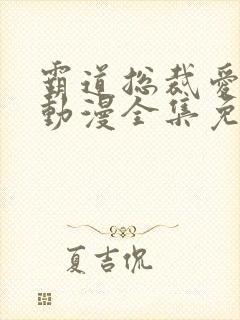 霸道总裁爱
動漫全集免
夏吉侃